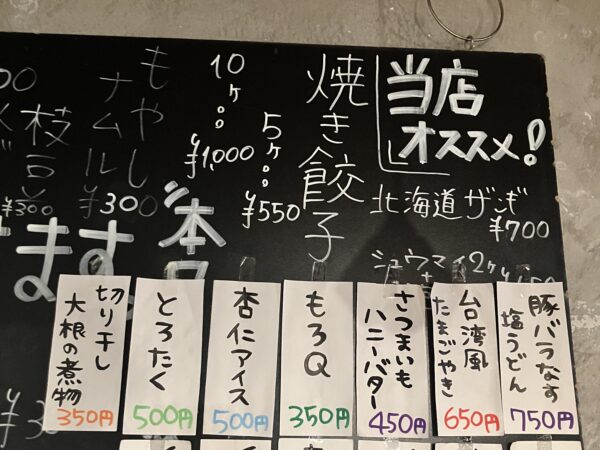 当店
オススメ!
北海道ザンギ
¥700
シュウマイ2ヶ
焼き餃子
5ヶ
¥550
10ヶ
¥1,000
もやし
ナムル
¥300
枝豆
¥300
ます。
豚バラなす
塩うどん
750円
台湾風
たまごやき
650円
さつまいも
ハニーバター
450円
もろQ
350円
杏仁アイス
500円
とろたく
500円
切り干し
大根の煮物
350円